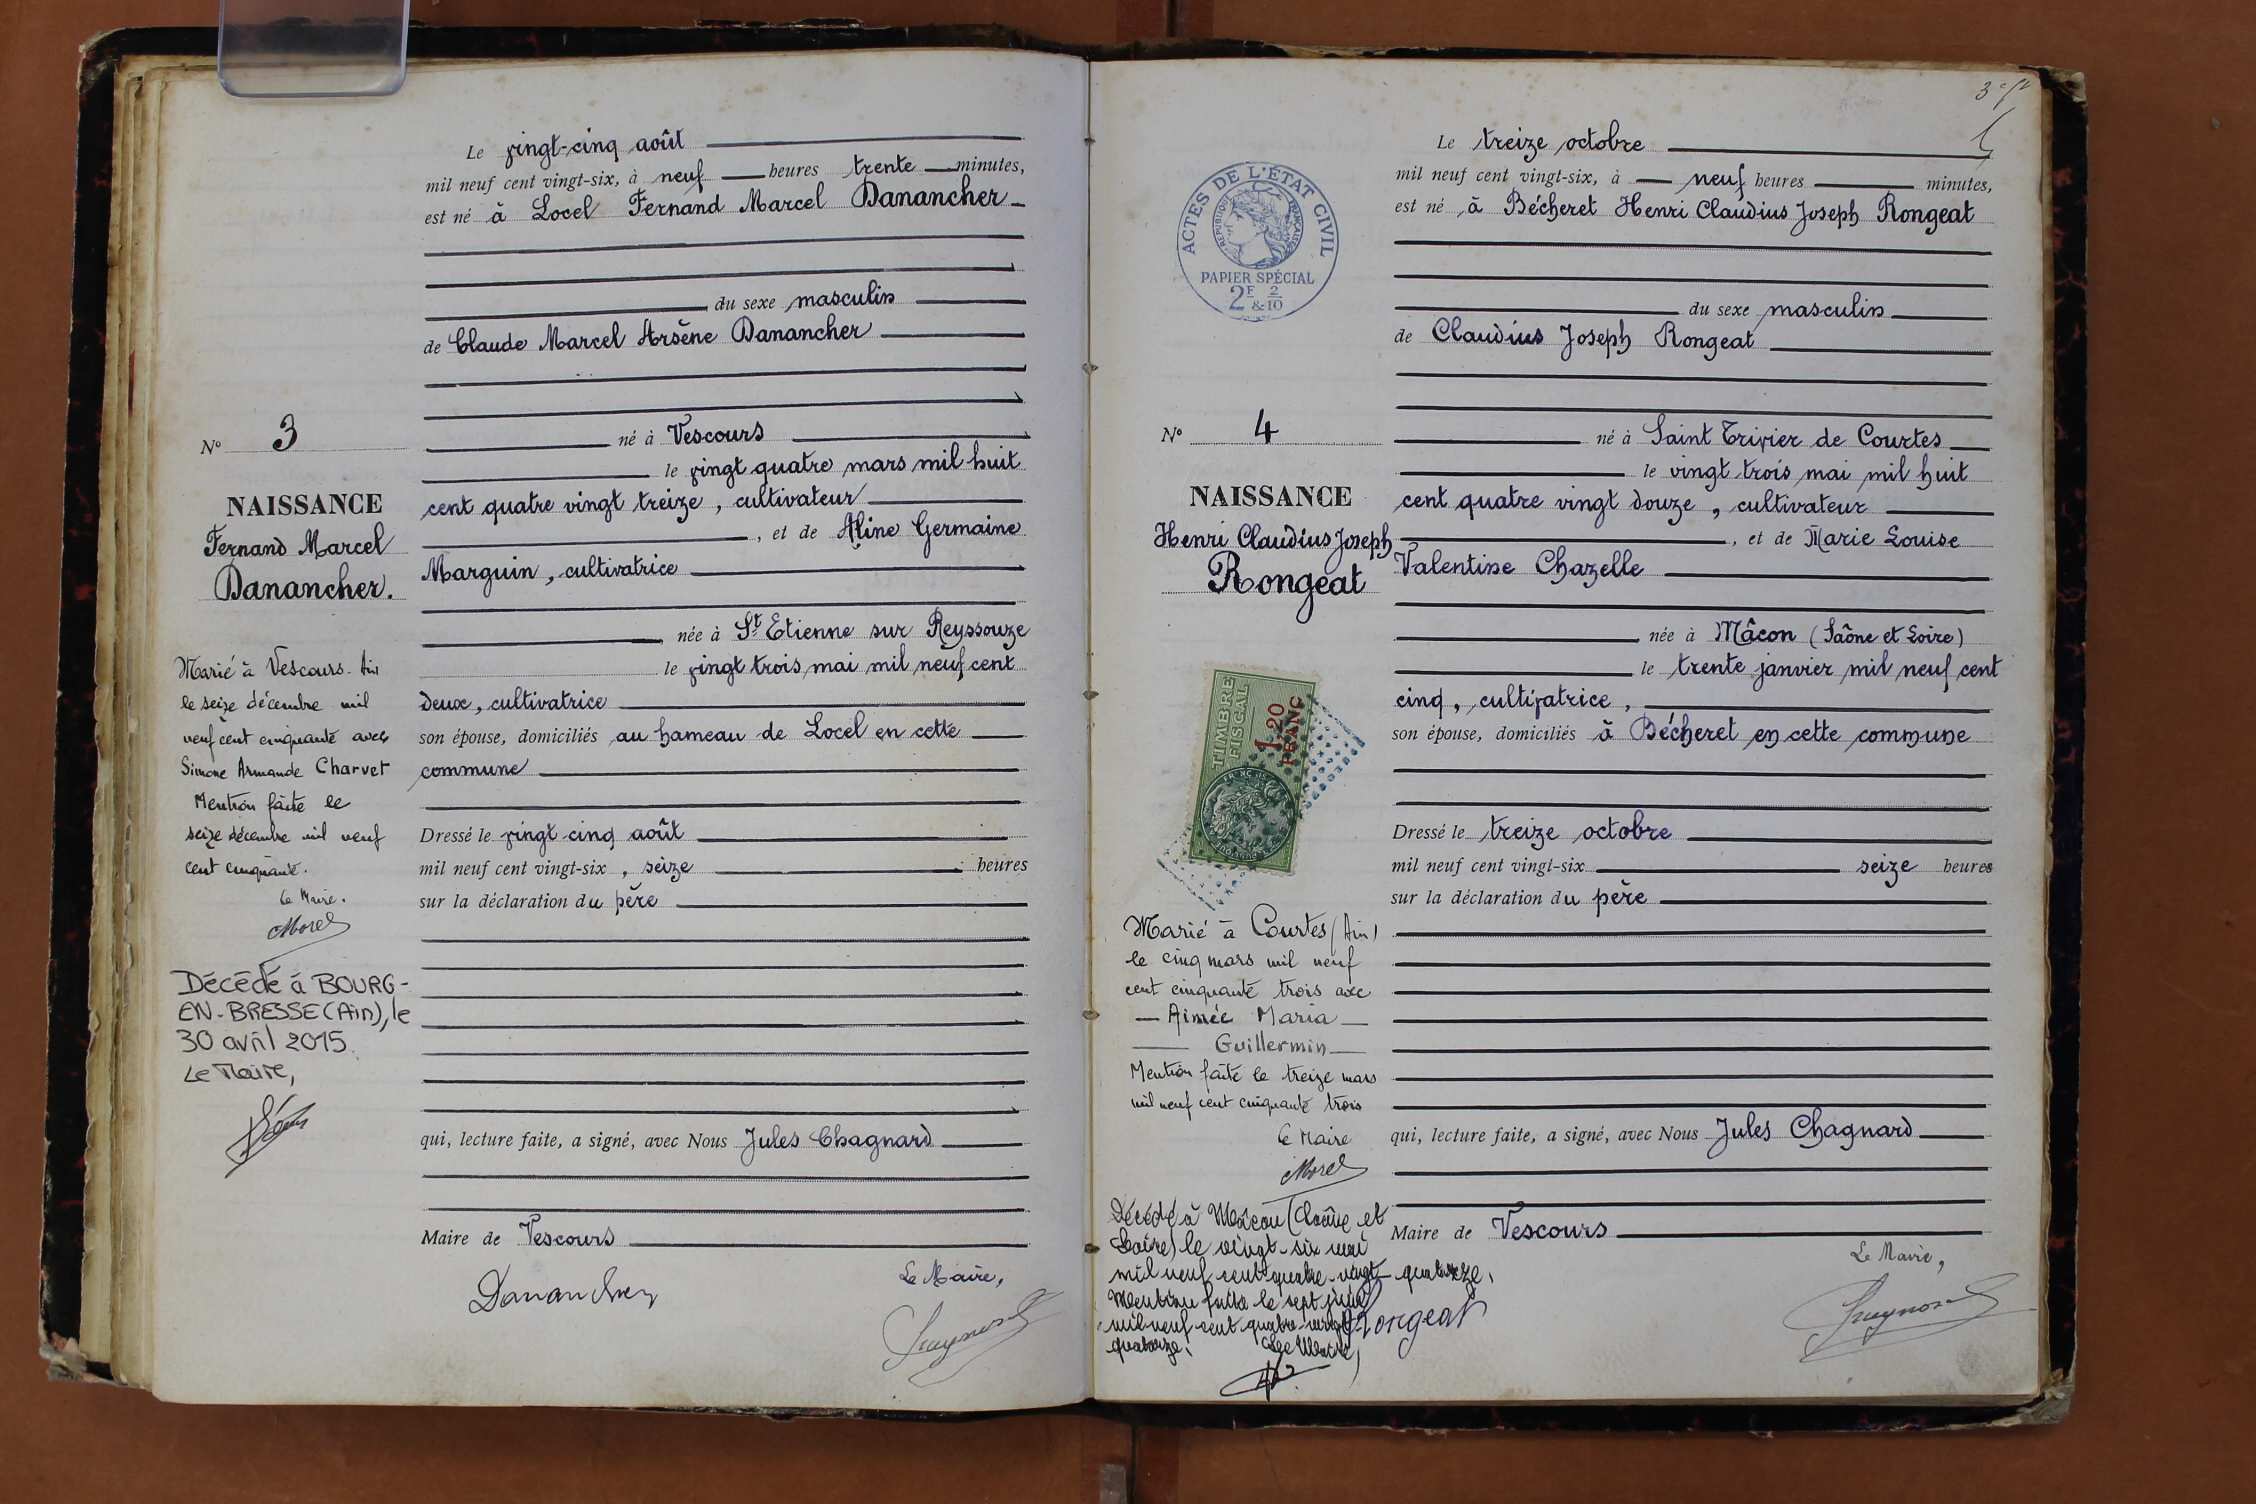 Le vingt-cinq août
mil neuf cent vingt-six, à neuf heures trente minutes,
est né à Locel Fernand Marcel Danancher
du sexe masculin
de Claude Marcel Arsène Danancher
né à Vescours
le vingt quatre mars mil huit
cent quatre vingt treize, cultivateur
, et de Aline Germaine
Marguin, cultivatrice
née à St Etienne sur Reyssouze
le vingt trois mai mil neuf cent
deux, cultivatrice
son épouse, domiciliés au hameau de Locel en cette
commune
Dressé le vingt cinq août
mil neuf cent vingt-six, seize heures
sur la déclaration du père
qui, lecture faite, a signé, avec Nous Jules Chagnard
Maire de Vescours
Le Maire,
Danancher
No 3
NAISSANCE
Fernand Marcel
Danancher.
Marié à Vescours. Ain
le seize décembre mil
neuf cent cinquante avec
Simone Armande Charvet
Mention faite le
seize décembre mil neuf
cent cinquante.
Le Maire.
Morel
Décédé à BOURG-
EN-BRESSE (Ain), le
30 avril 2015.
Le Maire,
3e
Le treize octobre
mil neuf cent vingt-six, à neuf heures minutes,
est né, à Bécheret Henri Claudius Joseph Rongeat
du sexe masculin
de Claudius Joseph Rongeat
né à Saint Trivier de Courtes
le vingt trois mai mil huit
cent quatre vingt douze, cultivateur
, et de Marie Louise
Valentine Chazelle
née à Mâcon (Saône et Loire)
le trente janvier mil neuf cent
cinq, cultivatrice,
son épouse, domiciliés à Bécheret en cette commune
Dressé le treize octobre
mil neuf cent vingt-six seize heures
sur la déclaration du père
qui, lecture faite, a signé, avec Nous Jules Chagnard
Maire de Vescours
Le Maire,
Rongeat
ACTES DE L'ÉTAT CIVIL
RÉPUBLIQUE FRANÇAISE
PAPIER SPÉCIAL
2F & 2/10
No 4
NAISSANCE
Henri Claudius Joseph
Rongeat
TIMBRE
FISCAL
1,20
FRANC
Marié à Courtes (Ain)
le cinq mars mil neuf
cent cinquante trois avec
Aimée Maria
Guillermin
Mention faite le treize mars
mil neuf cent cinquante trois
Le Maire
Morel
Décédé à Mâcon (Saône et
Loire) le vingt-six mai
mil neuf cent quatre-vingt-quatorze.
Mention faite le sept juin
mil neuf cent quatre-vingt-
quatorze.
Le Maire,